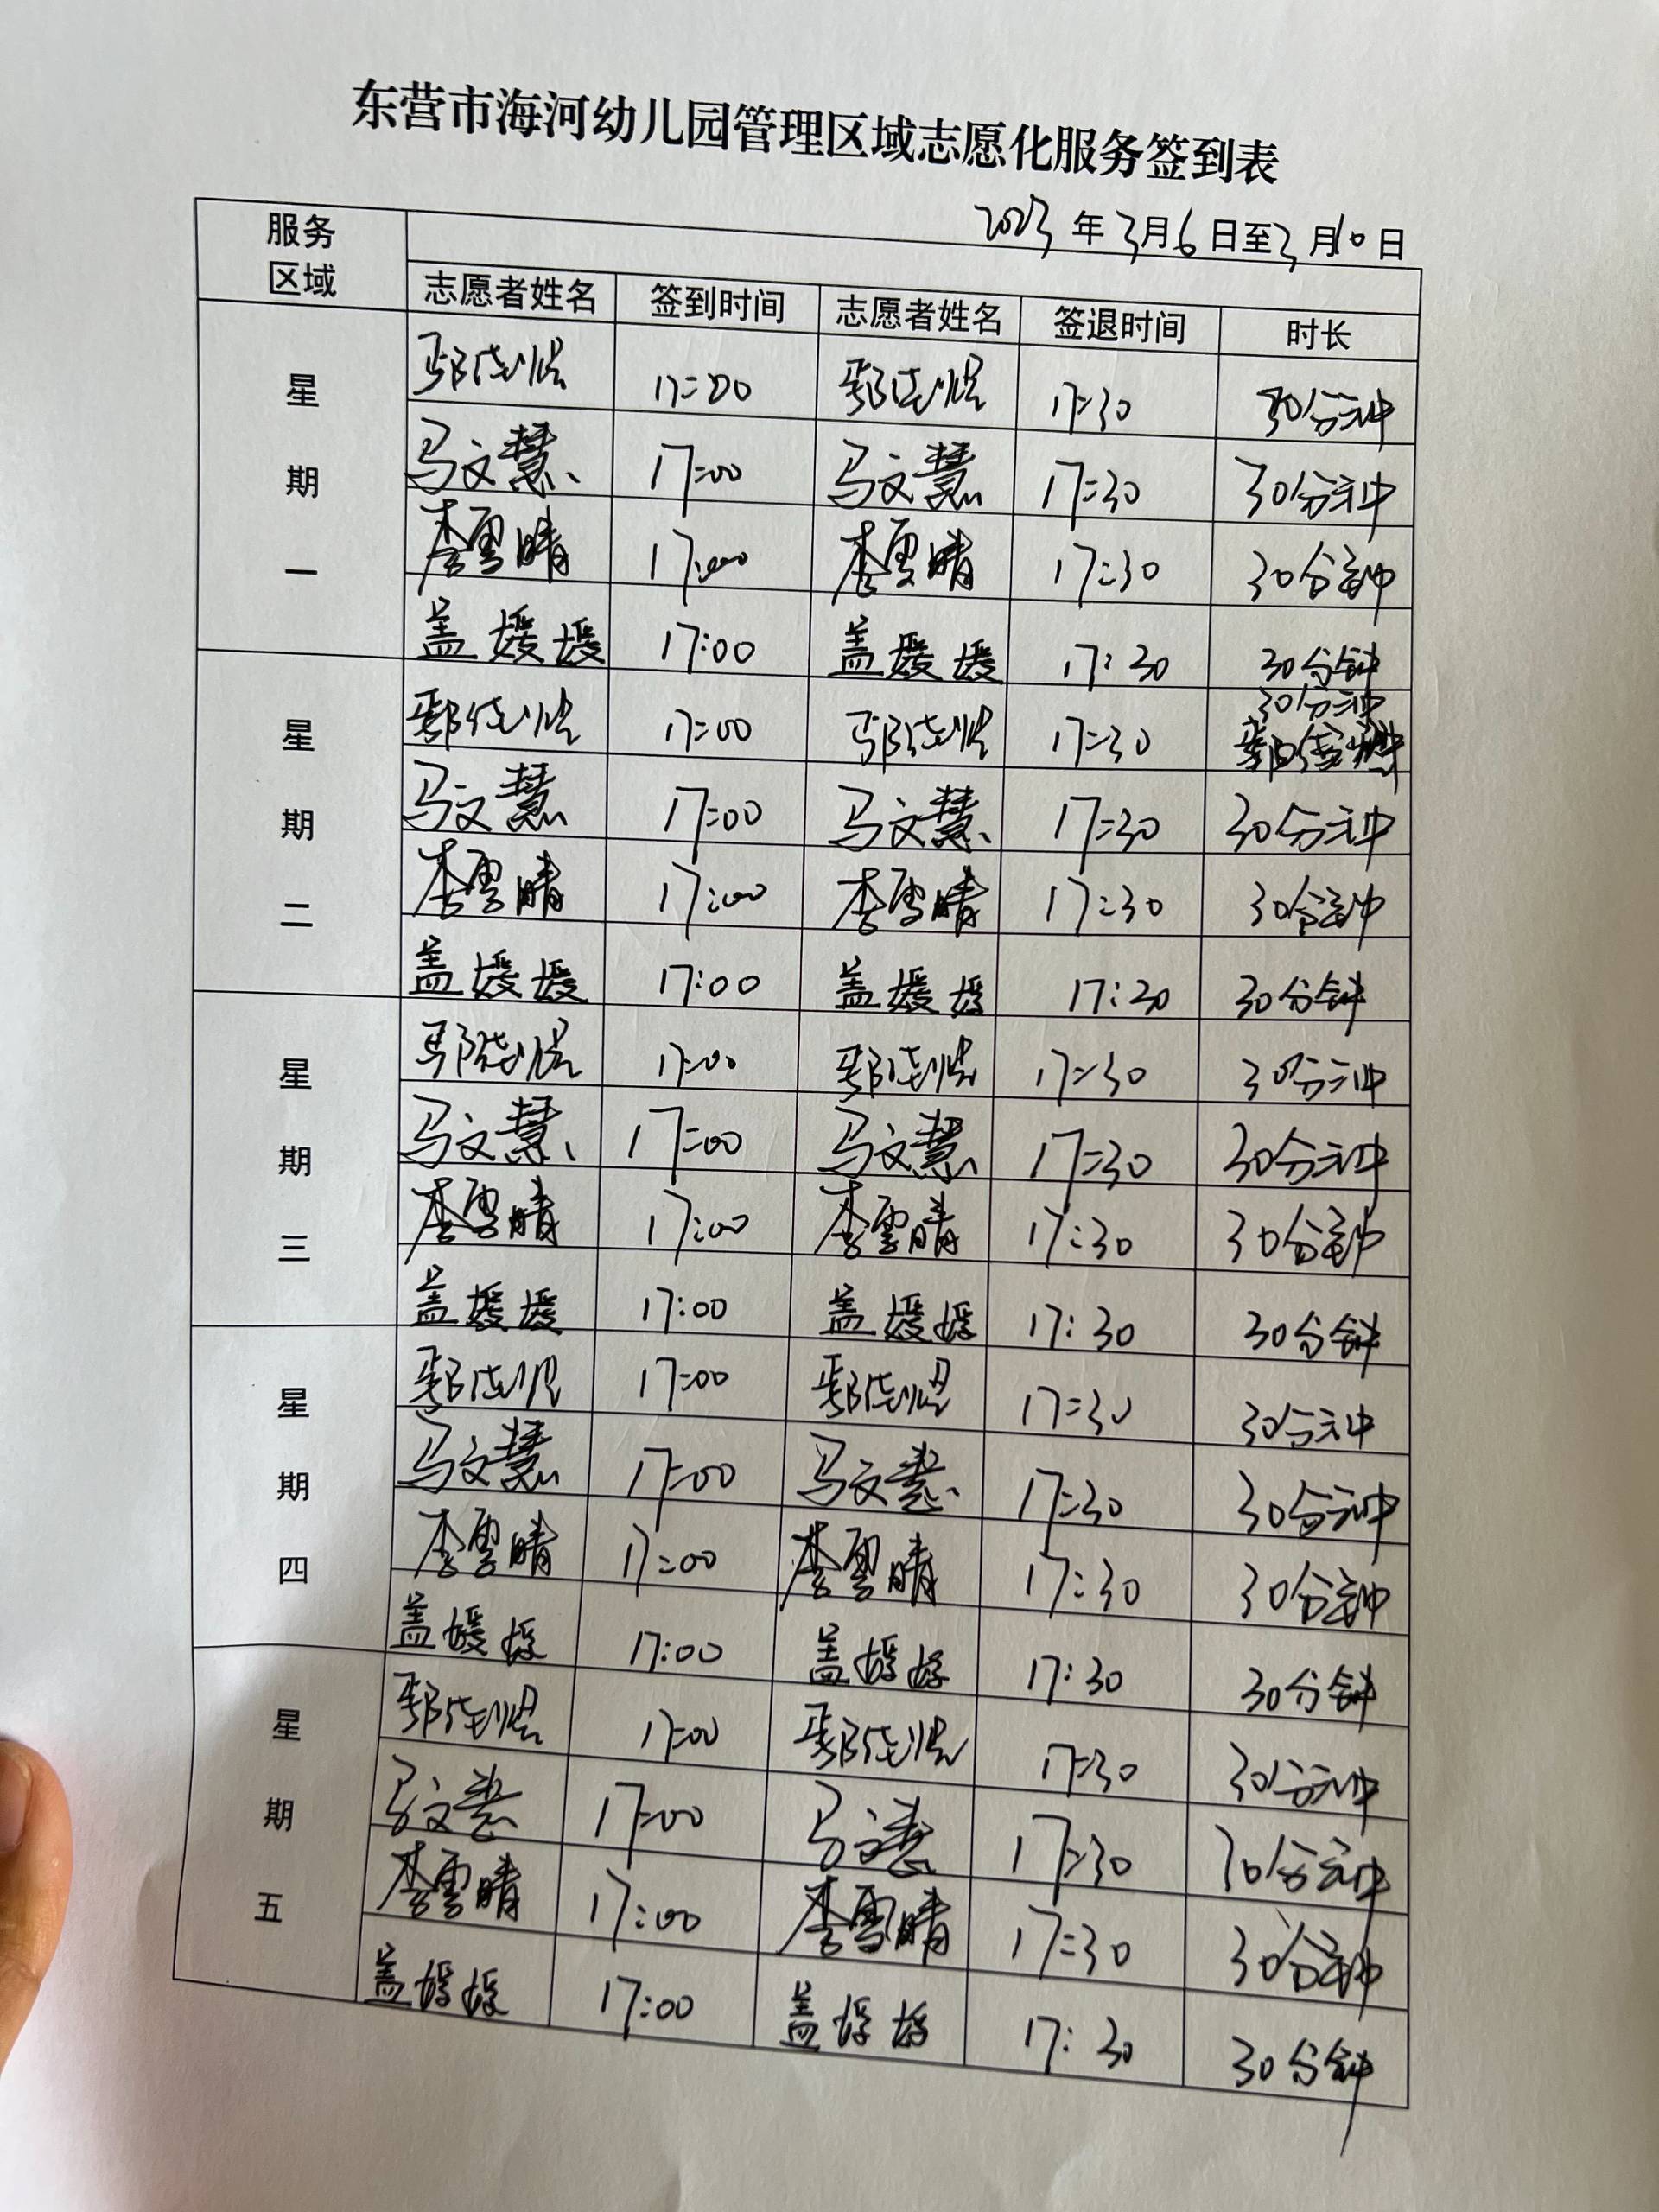 东营市海河幼儿园管理区域志愿化服务签到表
服务区域 2023年3月6日至3月10日
志愿者姓名 签到时间 志愿者姓名 签退时间 时长
星期一
17:00 17:30 30分钟
马文慧 17:00 马文慧 17:30 30分钟
李雪晴 17:00 李雪晴 17:30 30分钟
盖媛媛 17:00 盖媛媛 17:30 30分钟
星期二
17:00 17:30 30分钟
马文慧 17:00 马文慧 17:30 30分钟
李雪晴 17:00 李雪晴 17:30 30分钟
盖媛媛 17:00 盖媛媛 17:30 30分钟
星期三
17:00 17:30 30分钟
马文慧 17:00 马文慧 17:30 30分钟
李雪晴 17:00 李雪晴 17:30 30分钟
盖媛媛 17:00 盖媛媛 17:30 30分钟
星期四
17:00 17:30 30分钟
马文慧 17:00 马文慧 17:30 30分钟
李雪晴 17:00 李雪晴 17:30 30分钟
盖媛媛 17:00 盖媛媛 17:30 30分钟
星期五
17:00 17:30 30分钟
马文慧 17:00 马文慧 17:30 30分钟
李雪晴 17:00 李雪晴 17:30 30分钟
盖媛媛 17:00 盖媛媛 17:30 30分钟